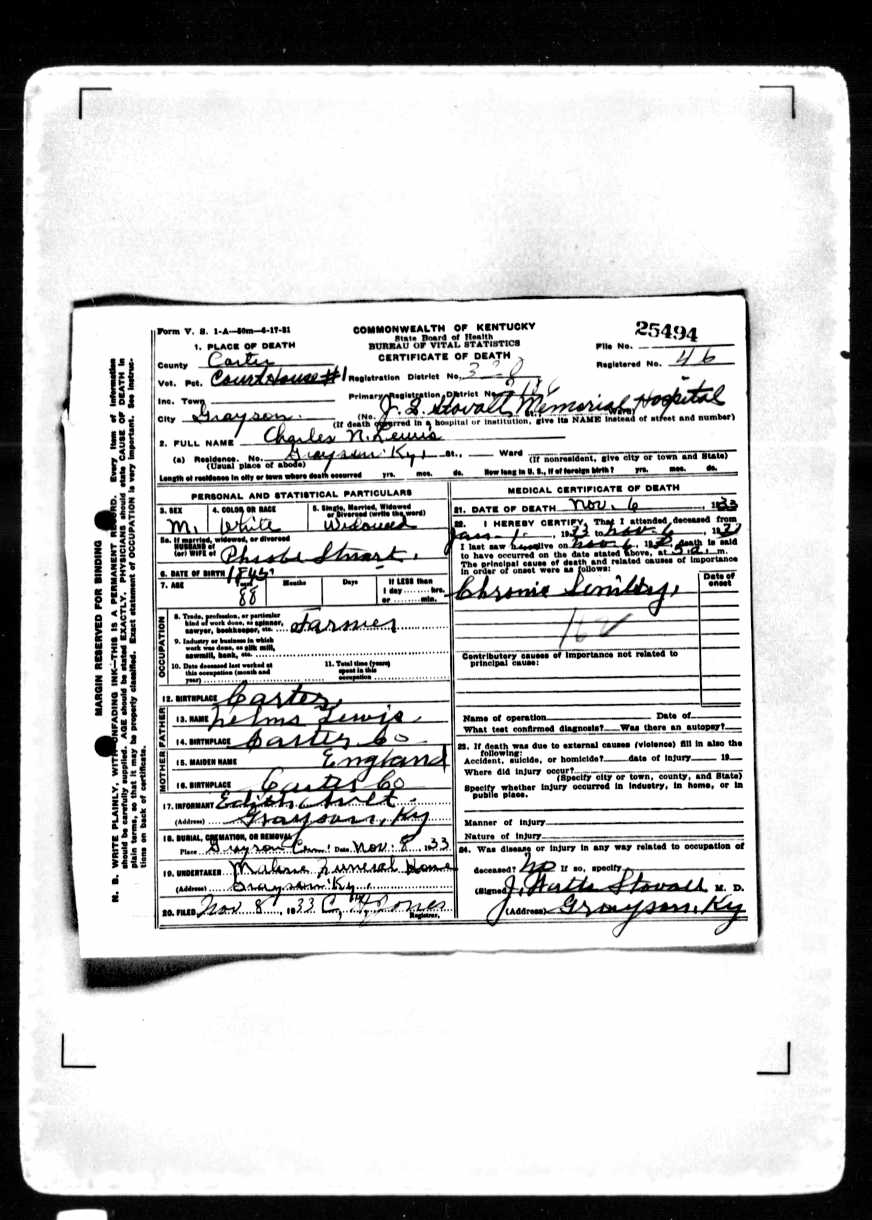 Form V. S. 1-A—50m—6-17-31
COMMONWEALTH OF KENTUCKY
State Board of Health
BUREAU OF VITAL STATISTICS
CERTIFICATE OF DEATH
25494
File No.
Registered No. 46
1. PLACE OF DEATH
County Carter
Vot. Pct. Court House #1 Registration District No.
Inc. Town Primary Registration District No.
City Grayson (No. J. Q. Stovall Memorial Hospital Ward)
(If death occurred in a hospital or institution, give its NAME instead of street and number)
2. FULL NAME Charles N. Lewis
(a) Residence. No. Grayson Ky. St., Ward
(Usual place of abode) (If nonresident, give city or town and State)
Length of residence in city or town where death occurred yrs. mos. ds. How long in U. S., if of foreign birth? yrs. mos. ds.
PERSONAL AND STATISTICAL PARTICULARS
3. SEX M. 4. COLOR OR RACE White 5. Single, Married, Widowed or Divorced (write the word) Widowed
5a. If married, widowed, or divorced
HUSBAND of
(or) WIFE of Phoebe Stuart.
6. DATE OF BIRTH 1845
7. AGE Years 88 Months Days If LESS than 1 day hrs. or min.
OCCUPATION
8. Trade, profession, or particular kind of work done, as spinner, sawyer, bookkeeper, etc. Farmer
9. Industry or business in which work was done, as silk mill, sawmill, bank, etc.
10. Date deceased last worked at this occupation (month and year)
11. Total time (years) spent in this occupation
12. BIRTHPLACE Carter
FATHER
13. NAME Lewis
14. BIRTHPLACE Carter Co
MOTHER
15. MAIDEN NAME England
16. BIRTHPLACE Carter Co
17. INFORMANT Edith
(Address) Grayson, Ky
18. BURIAL, CREMATION, OR REMOVAL
Place Grayson Date Nov. 8, 1933
19. UNDERTAKER Malone Funeral Home
(Address) Grayson Ky.
20. FILED Nov 8, 1933 Jones
Registrar.
MEDICAL CERTIFICATE OF DEATH
21. DATE OF DEATH Nov. 6, 1933
22. I HEREBY CERTIFY, That I attended deceased from
1933 to Nov. 6, 1933
I last saw h alive on Nov. 6, 19 death is said
to have occurred on the date stated above, at m.
The principal cause of death and related causes of importance
in order of onset were as follows:
Date of onset
Chronic Senility,
162
Contributory causes of importance not related to
principal cause:
Name of operation Date of
What test confirmed diagnosis? Was there an autopsy?
23. If death was due to external causes (violence) fill in also the
following:
Accident, suicide, or homicide? date of injury 19
Where did injury occur?
(Specify city or town, county, and State)
Specify whether injury occurred in industry, in home, or in
public place.
Manner of injury
Nature of injury
24. Was disease or injury in any way related to occupation of
deceased? No If so, specify
(Signed) J. Watts Stovall M. D.
(Address) Grayson, Ky
MARGIN RESERVED FOR BINDING
N. B. WRITE PLAINLY, WITH UNFADING INK—THIS IS A PERMANENT RECORD. Every item of information
should be carefully supplied. AGE should be stated EXACTLY. PHYSICIANS should state CAUSE OF DEATH in
plain terms, so that it may be properly classified. Exact statement of OCCUPATION is very important. See instruc-
tions on back of certificate.